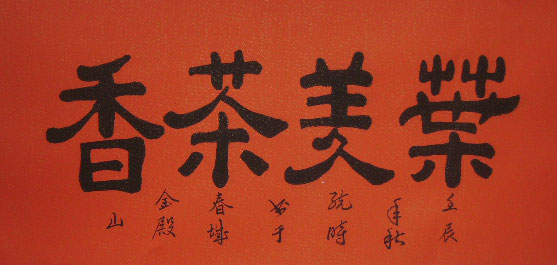 葉美茶香
壬辰
年秋
時
书于
春城
金殿
山